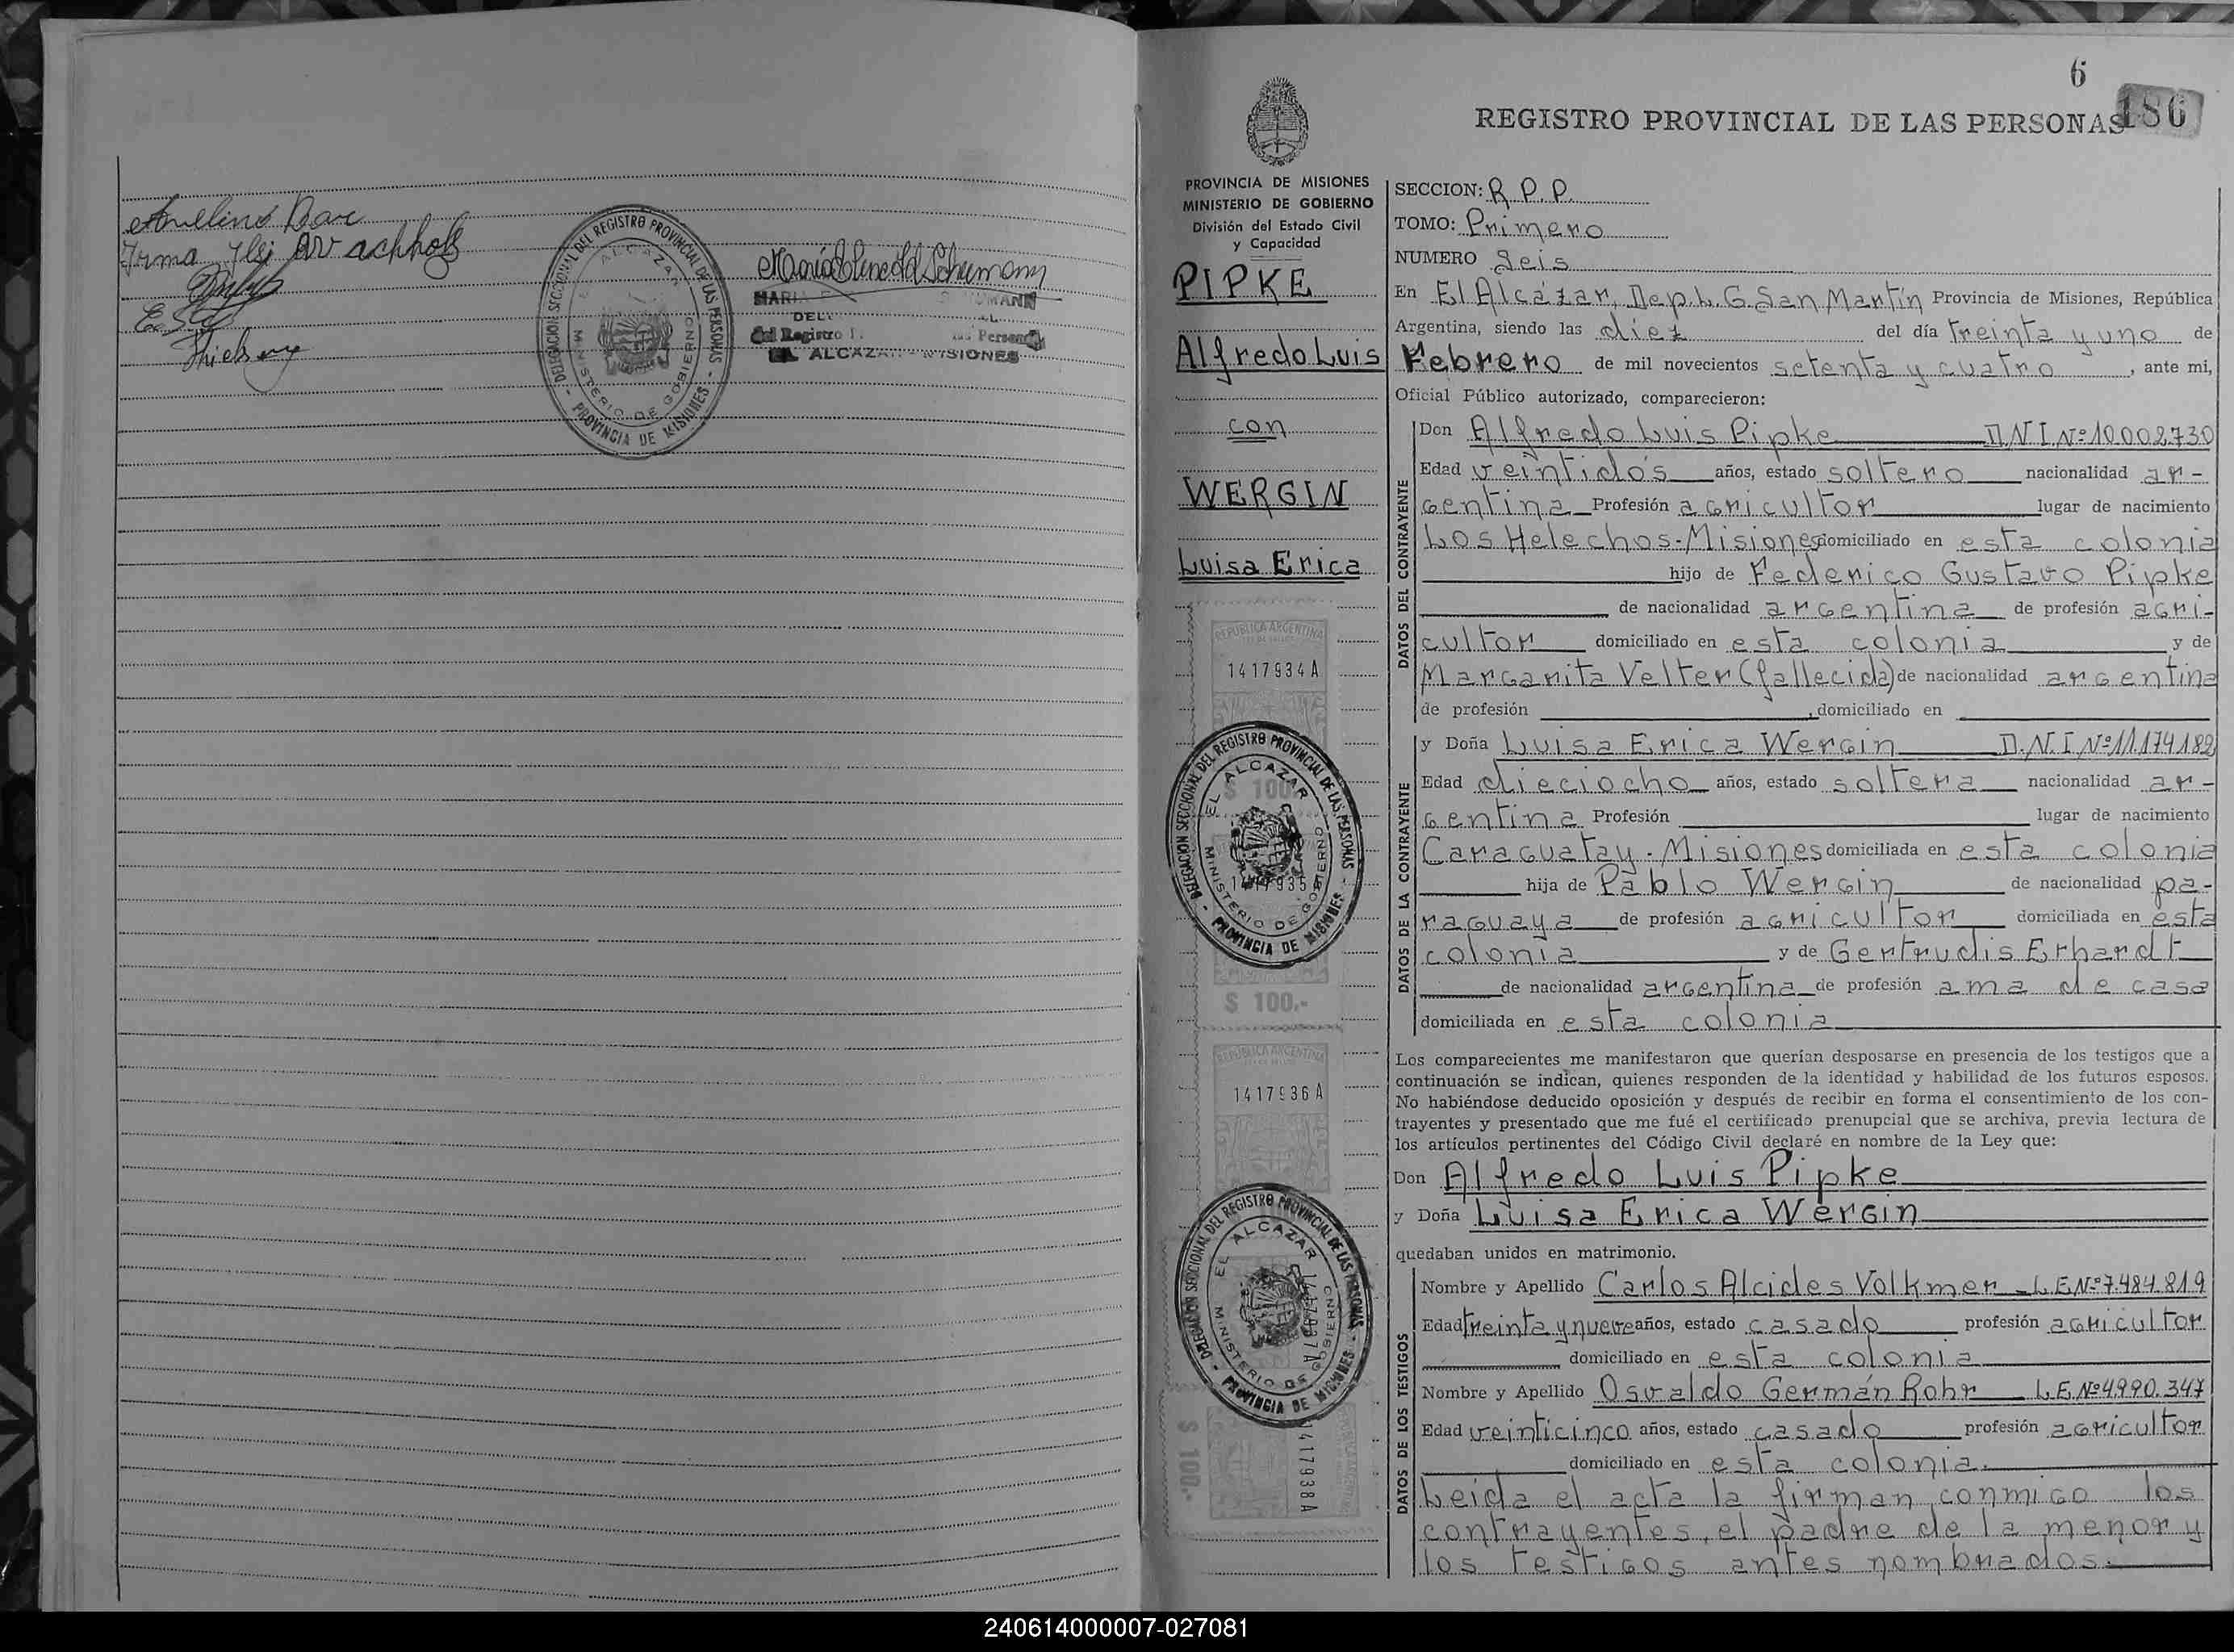 Avelino
Irma
DELEGACION SECCIONAL DEL REGISTRO PROVINCIAL DE LAS PERSONAS
ALCAZAR
MINISTERIO DE GOBIERNO
- PROVINCIA DE MISIONES -
MARIA
DEL
del Registro
EL ALCAZAR - MISIONES
6
186
REGISTRO PROVINCIAL DE LAS PERSONAS
PROVINCIA DE MISIONES
MINISTERIO DE GOBIERNO
División del Estado Civil
y Capacidad
PIPKE
Alfredo Luis
con
WERGIN
Luisa Erica
REPUBLICA ARGENTINA
1417934A
DELEGACION SECCIONAL DEL REGISTRO PROVINCIAL DE LAS PERSONAS
EL ALCAZAR
$ 100
1417935
MINISTERIO DE GOBIERNO
- PROVINCIA DE MISIONES -
$ 100.-
REPUBLICA ARGENTINA
1417936A
DELEGACION SECCIONAL DEL REGISTRO PROVINCIAL DE LAS PERSONAS
EL ALCAZAR
1417937A
MINISTERIO DE GOBIERNO
- PROVINCIA DE MISIONES -
$ 100.-
1417938A
SECCION: R.P.P.
TOMO: Primero
NUMERO Seis
En El Alcázar, Dep. L. G. San Martín Provincia de Misiones, República
Argentina, siendo las diez del día treinta y uno de
Febrero de mil novecientos setenta y cuatro, ante mi,
Oficial Público autorizado, comparecieron:
DATOS DEL CONTRAYENTE
Don Alfredo Luis Pipke DNI Nº 10002730
Edad veintidós años, estado soltero nacionalidad ar-
gentina Profesión agricultor lugar de nacimiento
Los Helechos-Misiones domiciliado en esta colonia
hijo de Federico Gustavo Pipke
de nacionalidad argentina de profesión agri-
cultor domiciliado en esta colonia y de
Margarita Velter (fallecida) de nacionalidad argentina
de profesión , domiciliado en
DATOS DE LA CONTRAYENTE
y Doña Luisa Erica Wergin D.N.I Nº 11174182
Edad dieciocho años, estado soltera nacionalidad ar-
gentina Profesión lugar de nacimiento
Caraguatay - Misiones domiciliada en esta colonia
hija de Pablo Wergin de nacionalidad pa-
raguaya de profesión agricultor domiciliada en esta
colonia y de Gertrudis Erhardt
de nacionalidad argentina de profesión ama de casa
domiciliada en esta colonia
Los comparecientes me manifestaron que querían desposarse en presencia de los testigos que a
continuación se indican, quienes responden de la identidad y habilidad de los futuros esposos.
No habiéndose deducido oposición y después de recibir en forma el consentimiento de los con-
trayentes y presentado que me fué el certificado prenupcial que se archiva, previa lectura de
los artículos pertinentes del Código Civil declaré en nombre de la Ley que:
Don Alfredo Luis Pipke
y Doña Luisa Erica Wergin
quedaban unidos en matrimonio.
DATOS DE LOS TESTIGOS
Nombre y Apellido Carlos Alcides Volkmer L.E.Nº 7.484.819
Edad treinta y nueve años, estado casado profesión agricultor
domiciliado en esta colonia
Nombre y Apellido Osvaldo Germán Rohr L.E.Nº 4.990.347
Edad veinticinco años, estado casado profesión agricultor
domiciliado en esta colonia.
Leida el acta la firman conmigo los
contrayentes, el padre de la menor y
los testigos antes nombrados.
240614000007-027081